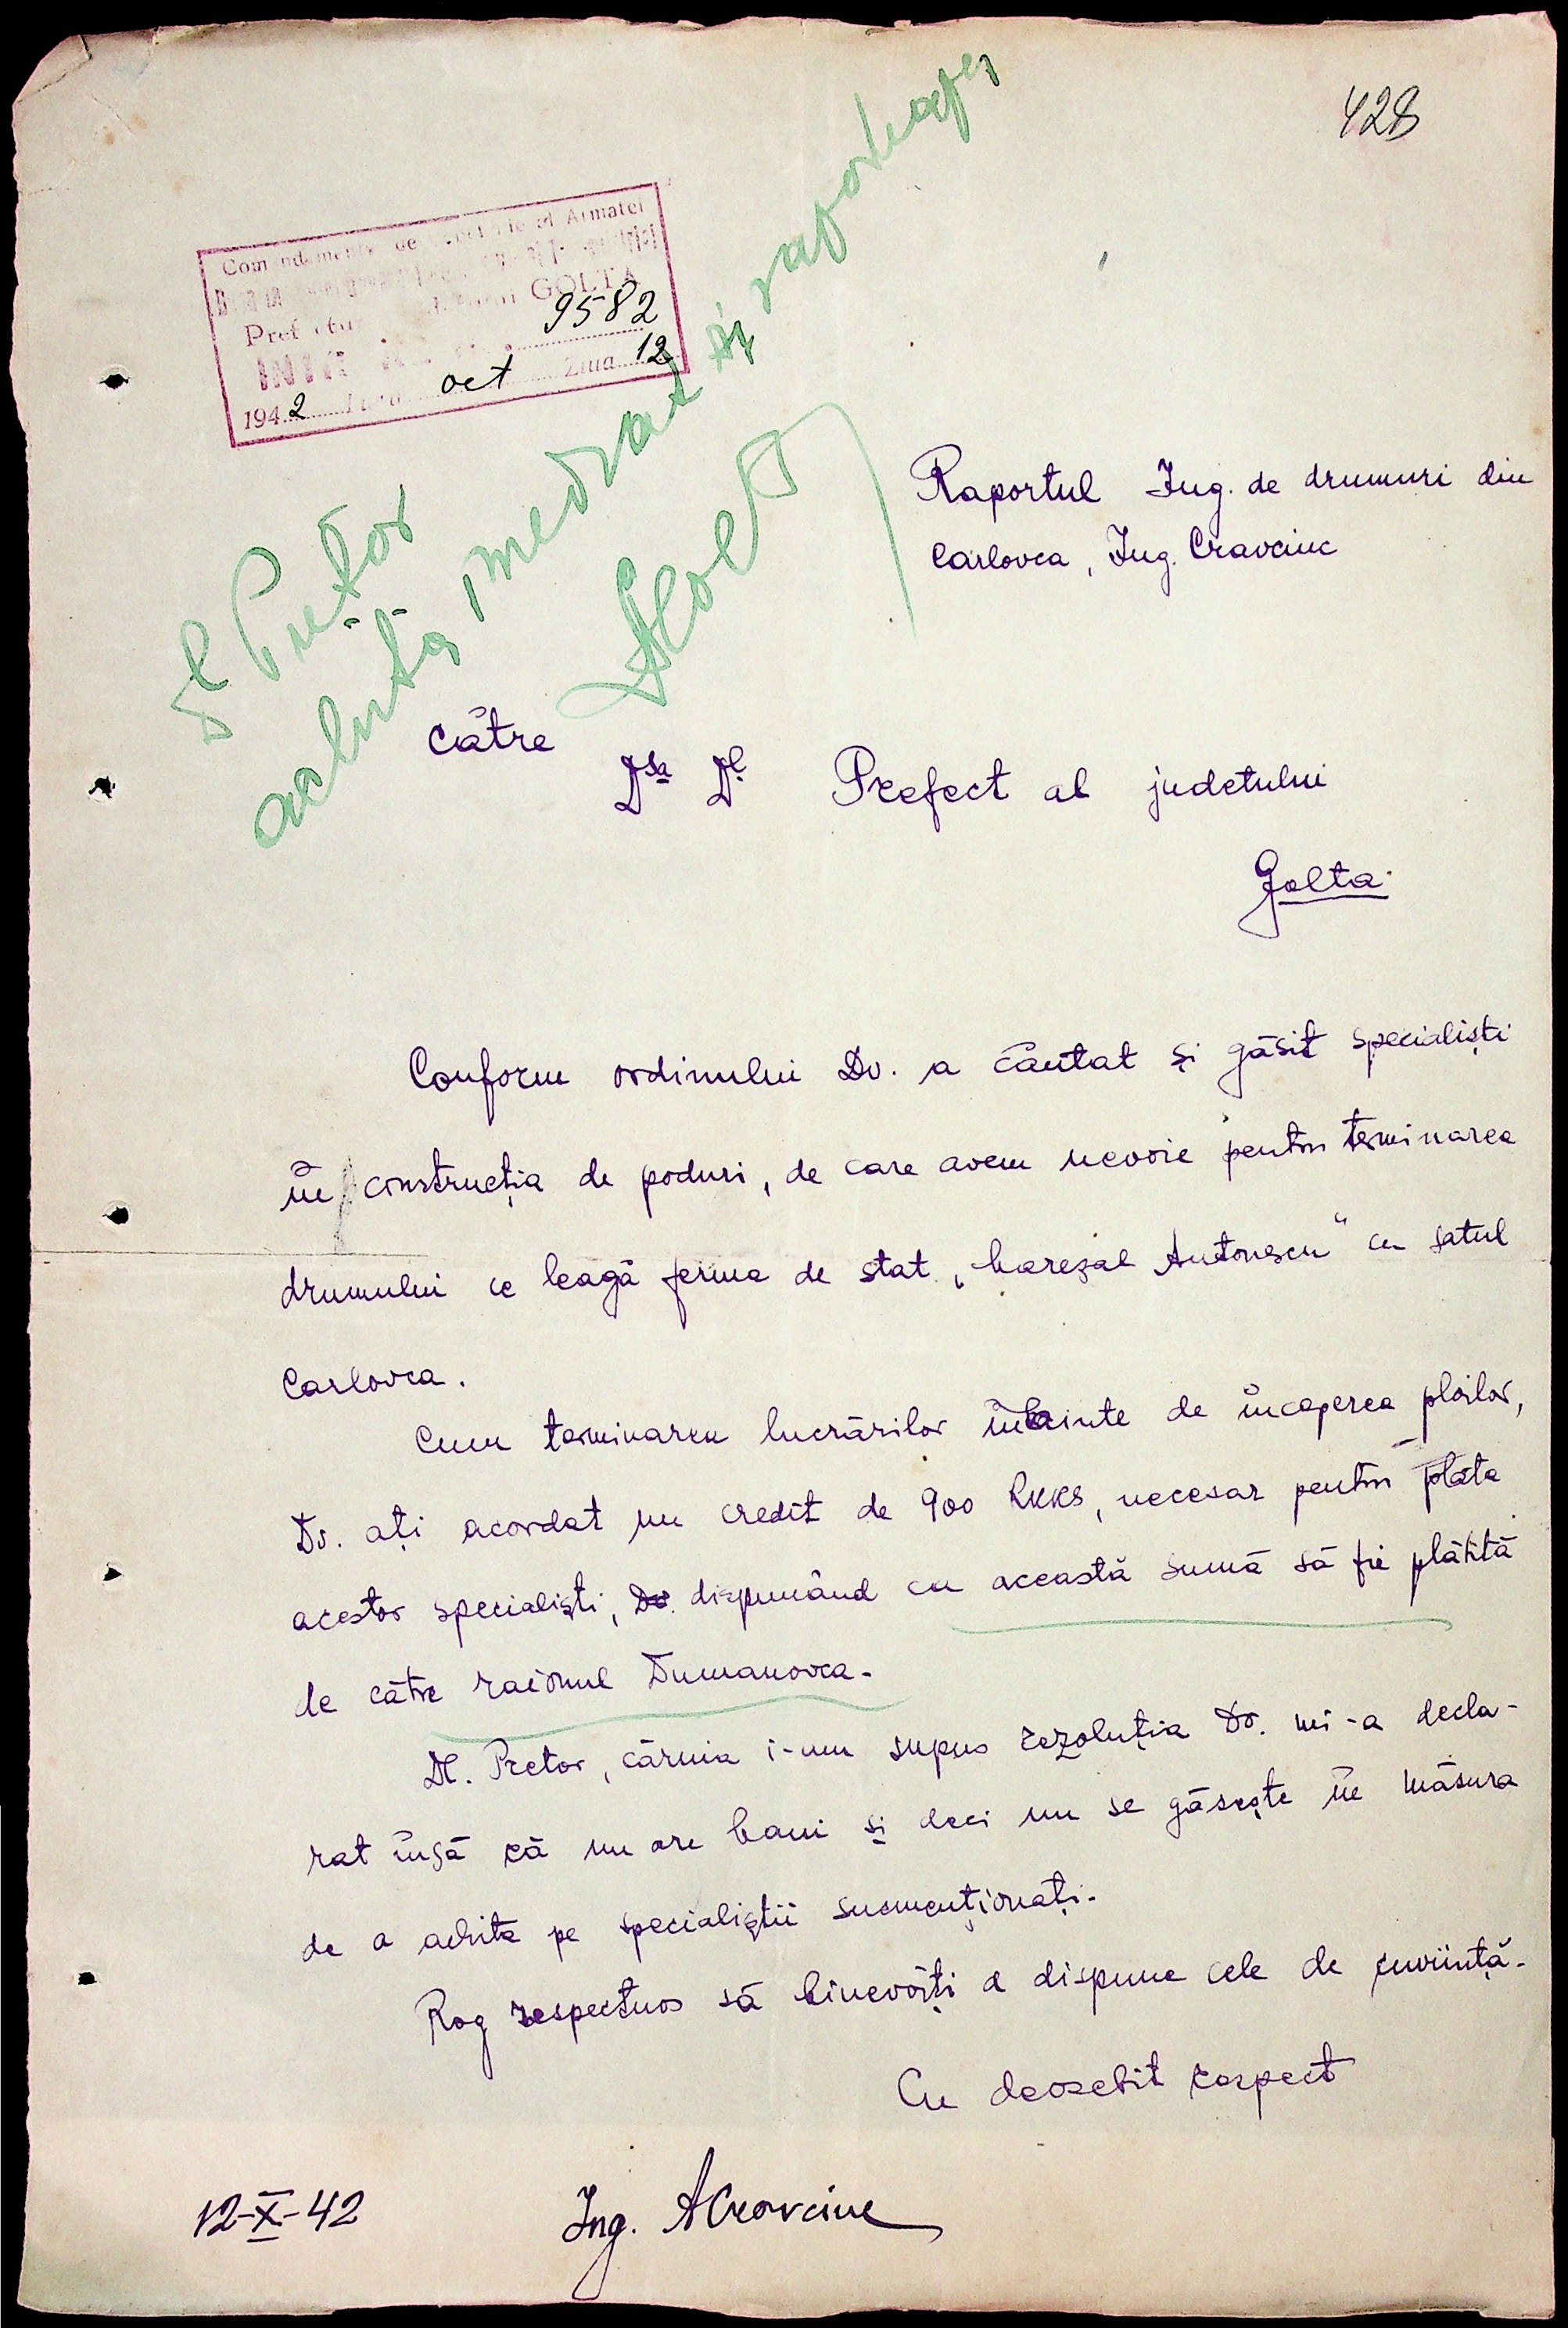 428
Comandamentul de Armatei
Pref GOLTA
9582
194 2 oct Ziua 12
Dl Pretor
achită imediat și raportează
Raportul Ing. de drumuri din
Carlovca, Ing. Cravciuc
Către
Dsa Dl Prefect al judetului
Golta
Conform ordinului Dv. a căutat și găsit specialiști
în construcția de poduri, de care avem nevoie pentru terminarea
drumului ce leagă ferma de stat „Mareșal Antonescu" cu satul
Carlovca.
Cum terminarea lucrărilor înainte de începerea ploilor,
Dv. ați acordat un credit de 900 RKKS, necesar pentru plata
acestor specialiști, Dv. dispunând ca această sumă să fie plătită
de către raionul Dumanovca.
Dl. Pretor, căruia i-am supus rezoluția Dv. mi-a decla-
rat însă că nu are bani și deci nu se găsește în măsura
de a achita pe specialiștii susmenționați.
Rog respectuos să binevoiți a dispune cele de cuviință.
Cu deosebit respect
12-X-42 Ing. ACravciuc